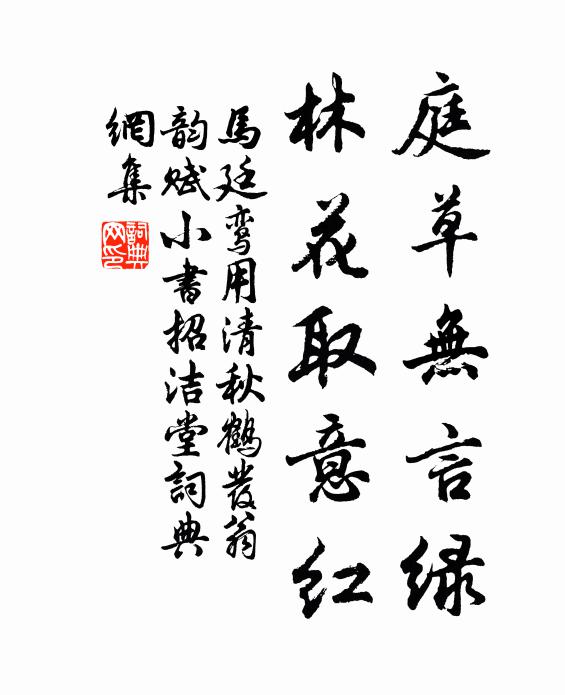 庭草無言绿
林花取意红
馬廷鸾用清秋鶴髮翁
韵赋小書招洁堂詞典
網集
詞典
网印